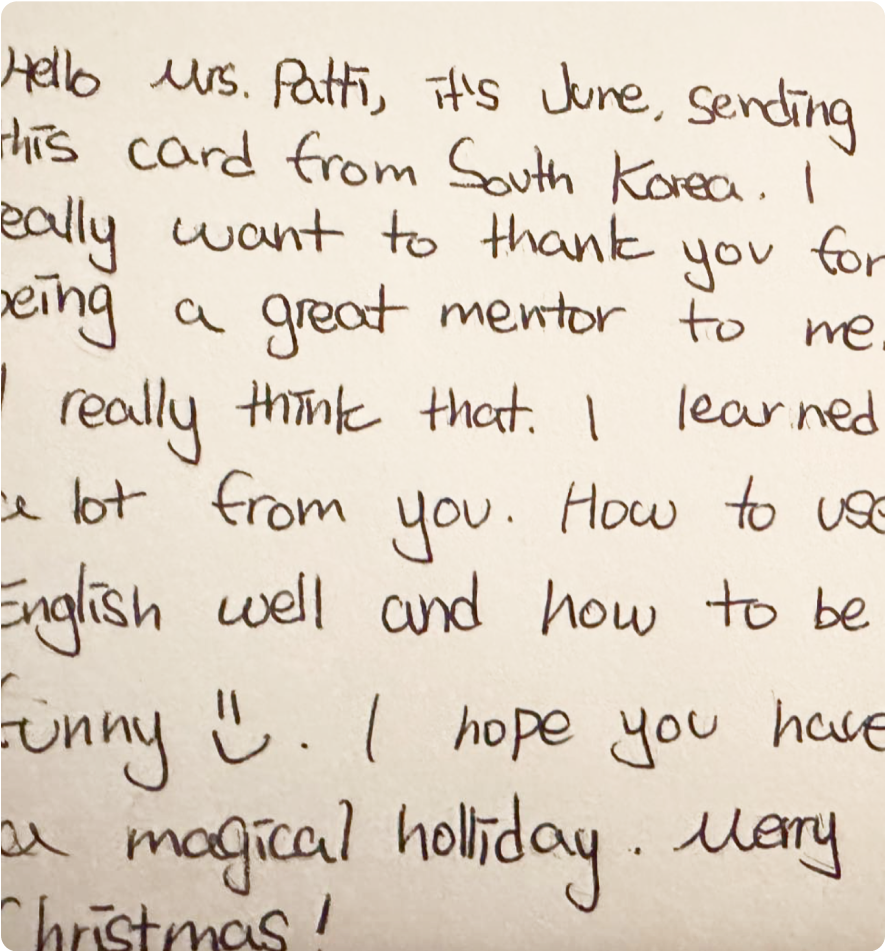 Hello Mrs. Patti, it's June, sending
this card from South Korea. I
really want to thank you for
being a great mentor to me.
I really think that. I learned
a lot from you. How to use
English well and how to be
funny :). I hope you have
a magical holliday. Merry
Christmas!